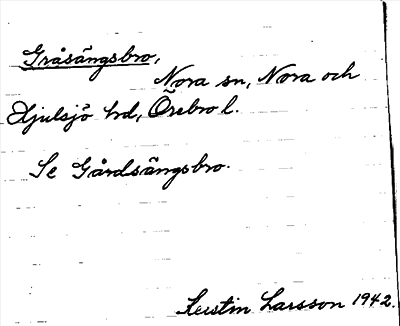 Gråsängsbro,
Nora sn, Nora och
Hjulsjö hd, Örebro l.
Se Gårdsängsbro.
Kerstin Larsson 1942.